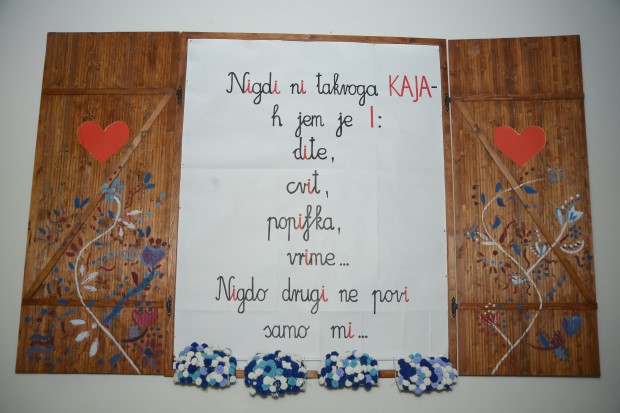 Nigdi ni takvoga KAJA-
h jem je I:
dite,
cvit,
popifka,
vrime...
Nigdo drugi ne povi
samo mi...